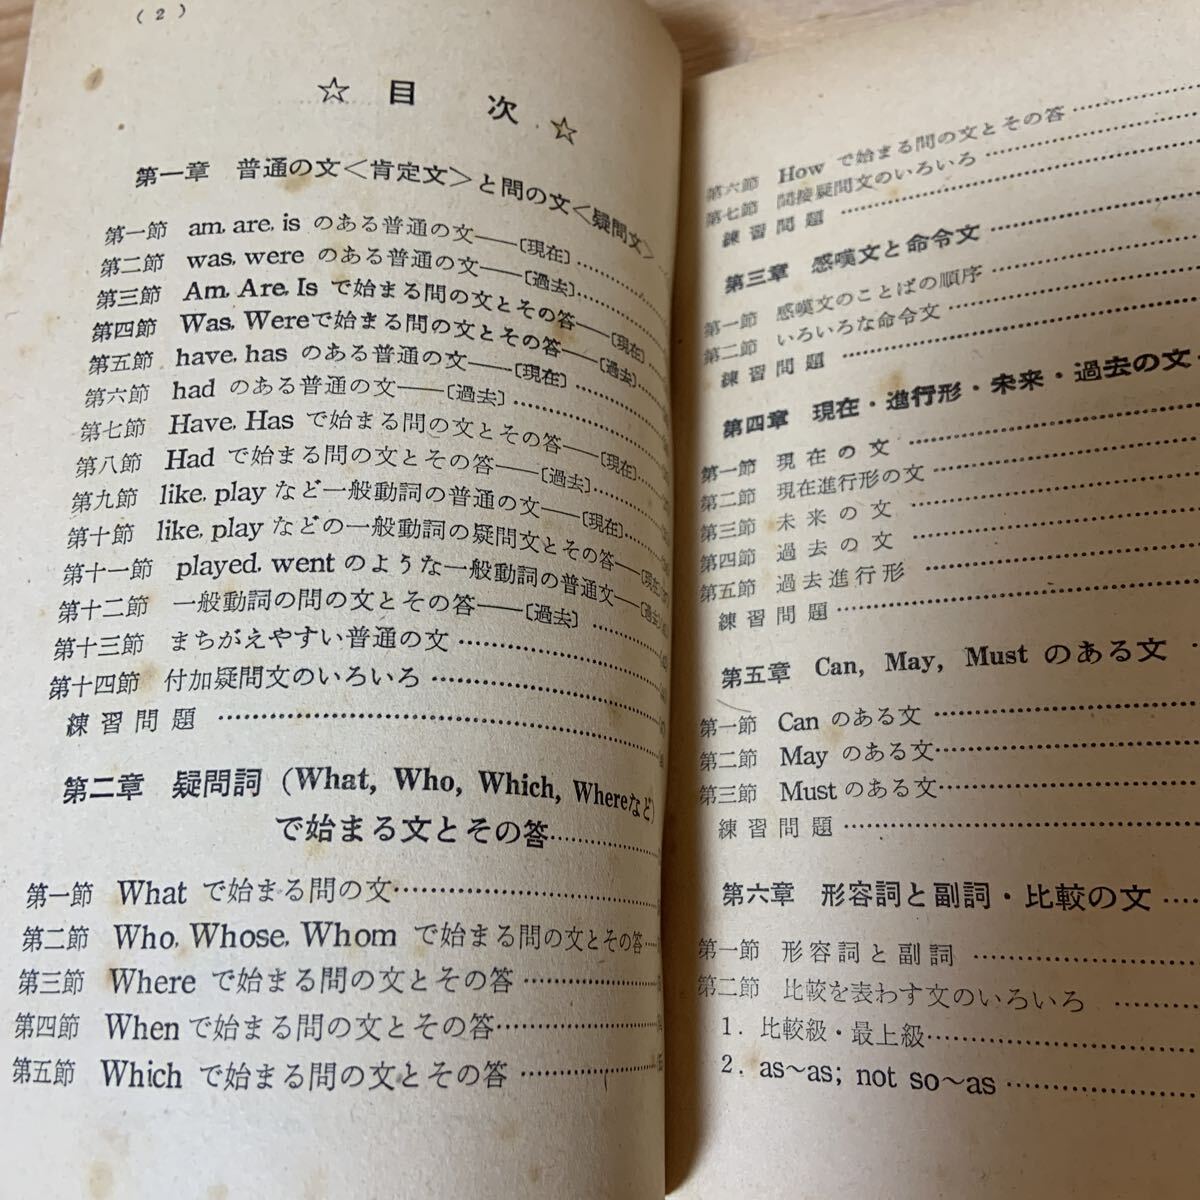 （2）
☆ 目 次 ☆
第一章 普通の文＜肯定文＞と問の文＜疑問文＞
第一節 am, are, is のある普通の文――〔現在〕
第二節 was, were のある普通の文――〔過去〕
第三節 Am, Are, Is で始まる問の文とその答――〔現在〕
第四節 Was, Wereで始まる問の文とその答――〔過去〕
第五節 have, has のある普通の文――〔現在〕
第六節 had のある普通の文――〔過去〕
第七節 Have, Has で始まる問の文とその答――〔現在〕
第八節 Had で始まる問の文とその答――〔過去〕
第九節 like, play など一般動詞の普通の文――〔現在〕
第十節 like, play などの一般動詞の疑問文とその答――〔現在〕
第十一節 played, went のような一般動詞の普通文――〔過去〕
第十二節 一般動詞の問の文とその答――〔過去〕
第十三節 まちがえやすい普通の文
第十四節 付加疑問文のいろいろ
練習問題
第二章 疑問詞 (What, Who, Which, Whereなど)
で始まる文とその答
第一節 What で始まる問の文
第二節 Who, Whose, Whom で始まる問の文とその答
第三節 Where で始まる問の文とその答
第四節 When で始まる問の文とその答
第五節 Which で始まる問の文とその答
第六節 How で始まる問の文とその答
第七節 間接疑問文のいろいろ
練習問題
第三章 感嘆文と命令文
第一節 感嘆文のことばの順序
第二節 いろいろな命令文
練習問題
第四章 現在・進行形・未来・過去の文
第一節 現在の文
第二節 現在進行形の文
第三節 未来の文
第四節 過去の文
第五節 過去進行形
練習問題
第五章 Can, May, Must のある文
第一節 Can のある文
第二節 May のある文
第三節 Must のある文
練習問題
第六章 形容詞と副詞・比較の文
第一節 形容詞と副詞
第二節 比較を表わす文のいろいろ
1. 比較級・最上級
2. as～as; not so～as